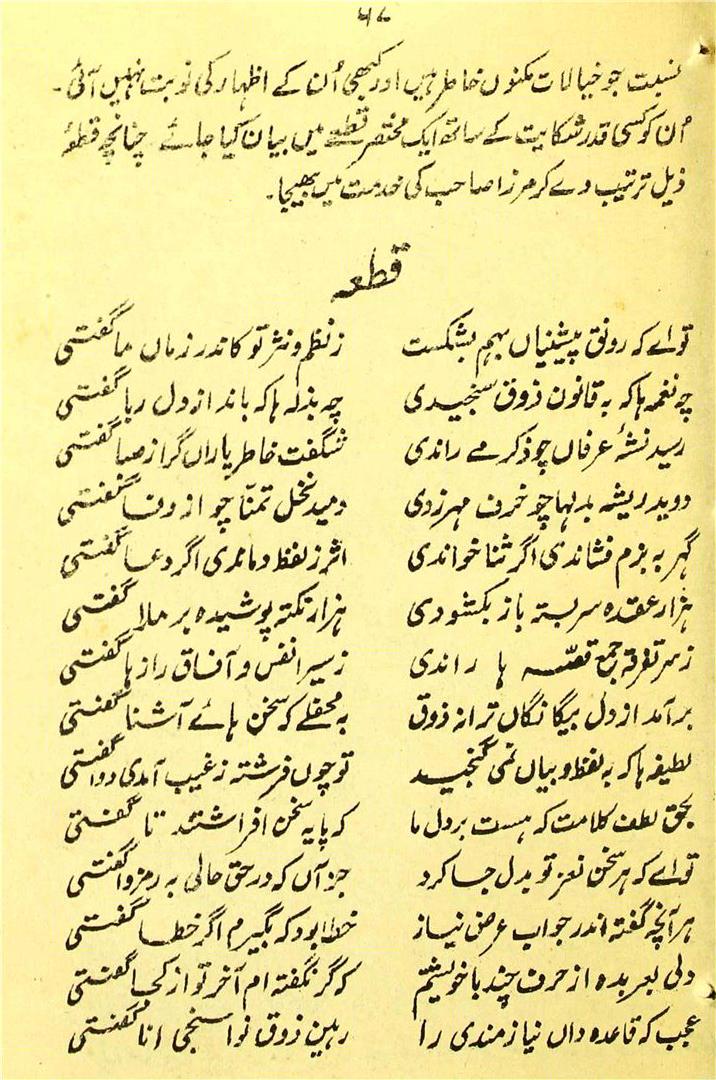 ۵۷
نسبت جو خیالات مکنونِ خاطر ہیں اور کبھی اُن کے اظہار کی نوبت نہیں آئی۔
اُن کو کسی قدر شکایت کے ساتھ ایک مختصر قطعے میں بیان کیا جائے چنانچہ قطعۂ
ذیل ترتیب دے کر مرزا صاحب کی خدمت میں بھیجا۔
قطعہ
تو اے کہ رونقِ پیشنیاں بہم بشکست ز نظم و نثرِ تو کاندر زمانِ ما گفتی
چہ نغمہ ہا کہ بہ قانونِ ذوق سنجیدی چہ بذلہ ہا کہ باندازِ دل ربا گفتی
رسید نشۂ عرفاں چو ذکرِ مے راندی شگفت خاطرِ یاراں گر از صبا گفتی
دوید ریشہ بدلہا چو حرفِ مہر زدی دمید نخلِ تمنّا چو از وفا گفتی
گہر بہ بزم فشاندی اگر ثنا خواندی اثر ز لفظ دماندی اگر دعا گفتی
ہزار عقدہ سربستہ باز بکشودی ہزار نکتہ پوشیدہ برملا گفتی
ز سرِ تفرقہ جمع قصّہ ہا راندی ز سیرِ انفس و آفاق رازہا گفتی
برآمد از دلِ بیگانگاں ترانۂ ذوق بہ محفلے کہ سخن ہائے آشنا گفتی
لطیفہ ہا کہ بہ لفظ و بیاں نمی گنجید تو چوں فرشتہ ز غیب آمدی و وا گفتی
بحقِ لطفِ کلامت کہ ہست بر دلِ ما کہ پایہ سخن افراشتند تا گفتی
تو اے کہ ہر سخنِ نغزِ تو بدل جا کرد جز آں کہ در حقِ حالی بہ رمز وا گفتی
ہر آنچہ گفتہ اندر جوابِ عرضِ نیاز خطا بود کہ بگیرم اگر خطا گفتی
ولی بعربدہ از حرفِ چند با خویشتم کہ گر نگفتہ ام آخر تو از کجا گفتی
عجب کہ قاعدہ دانِ نیازمندی را رہینِ ذوقِ نواسنجی انا گفتی